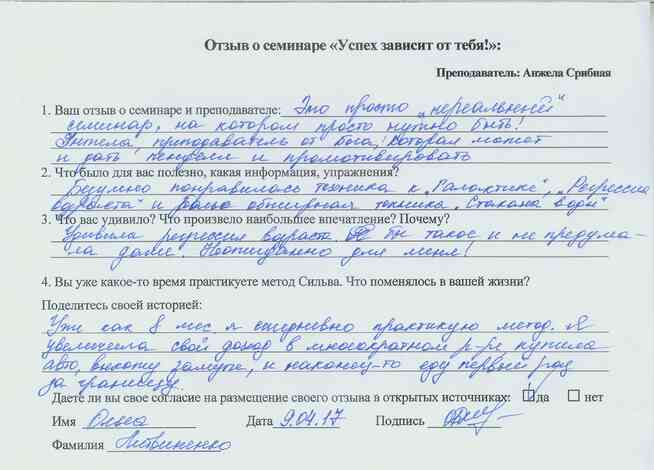 Отзыв о семинаре «Успех зависит от тебя!»:
Преподаватель: Анжела Срибная
1. Ваш отзыв о семинаре и преподавателе: Это просто „нереальный“
семинар, на котором просто нужно быть!
Анжела, преподаватель от бога, которая может
и дать пендели и промотивировать
2. Что было для вас полезно, какая информация, упражнения?
Безумно понравилась техника к „Галактике“, „Регрессия
возраста“ и обширная техника „Стакана воды“
3. Что вас удивило? Что произвело наибольшее впечатление? Почему?
Удивила регрессия возраста. Я бы такое и не придума-
ла даже. Неожиданно для меня!
4. Вы уже какое-то время практикуете метод Сильва. Что поменялось в вашей жизни?
Поделитесь своей историей:
Уже как 8 мес. я ежедневно практикую метод. Я
увеличила свой доход в многократном р-ре, купила
авто, выхожу замуж, и наконец-то еду первый раз
за границу.
Даете ли вы свое согласие на размещение своего отзыва в открытых источниках: да нет
Имя Ольга Дата 9.04.17 Подпись
Фамилия Литвиненко